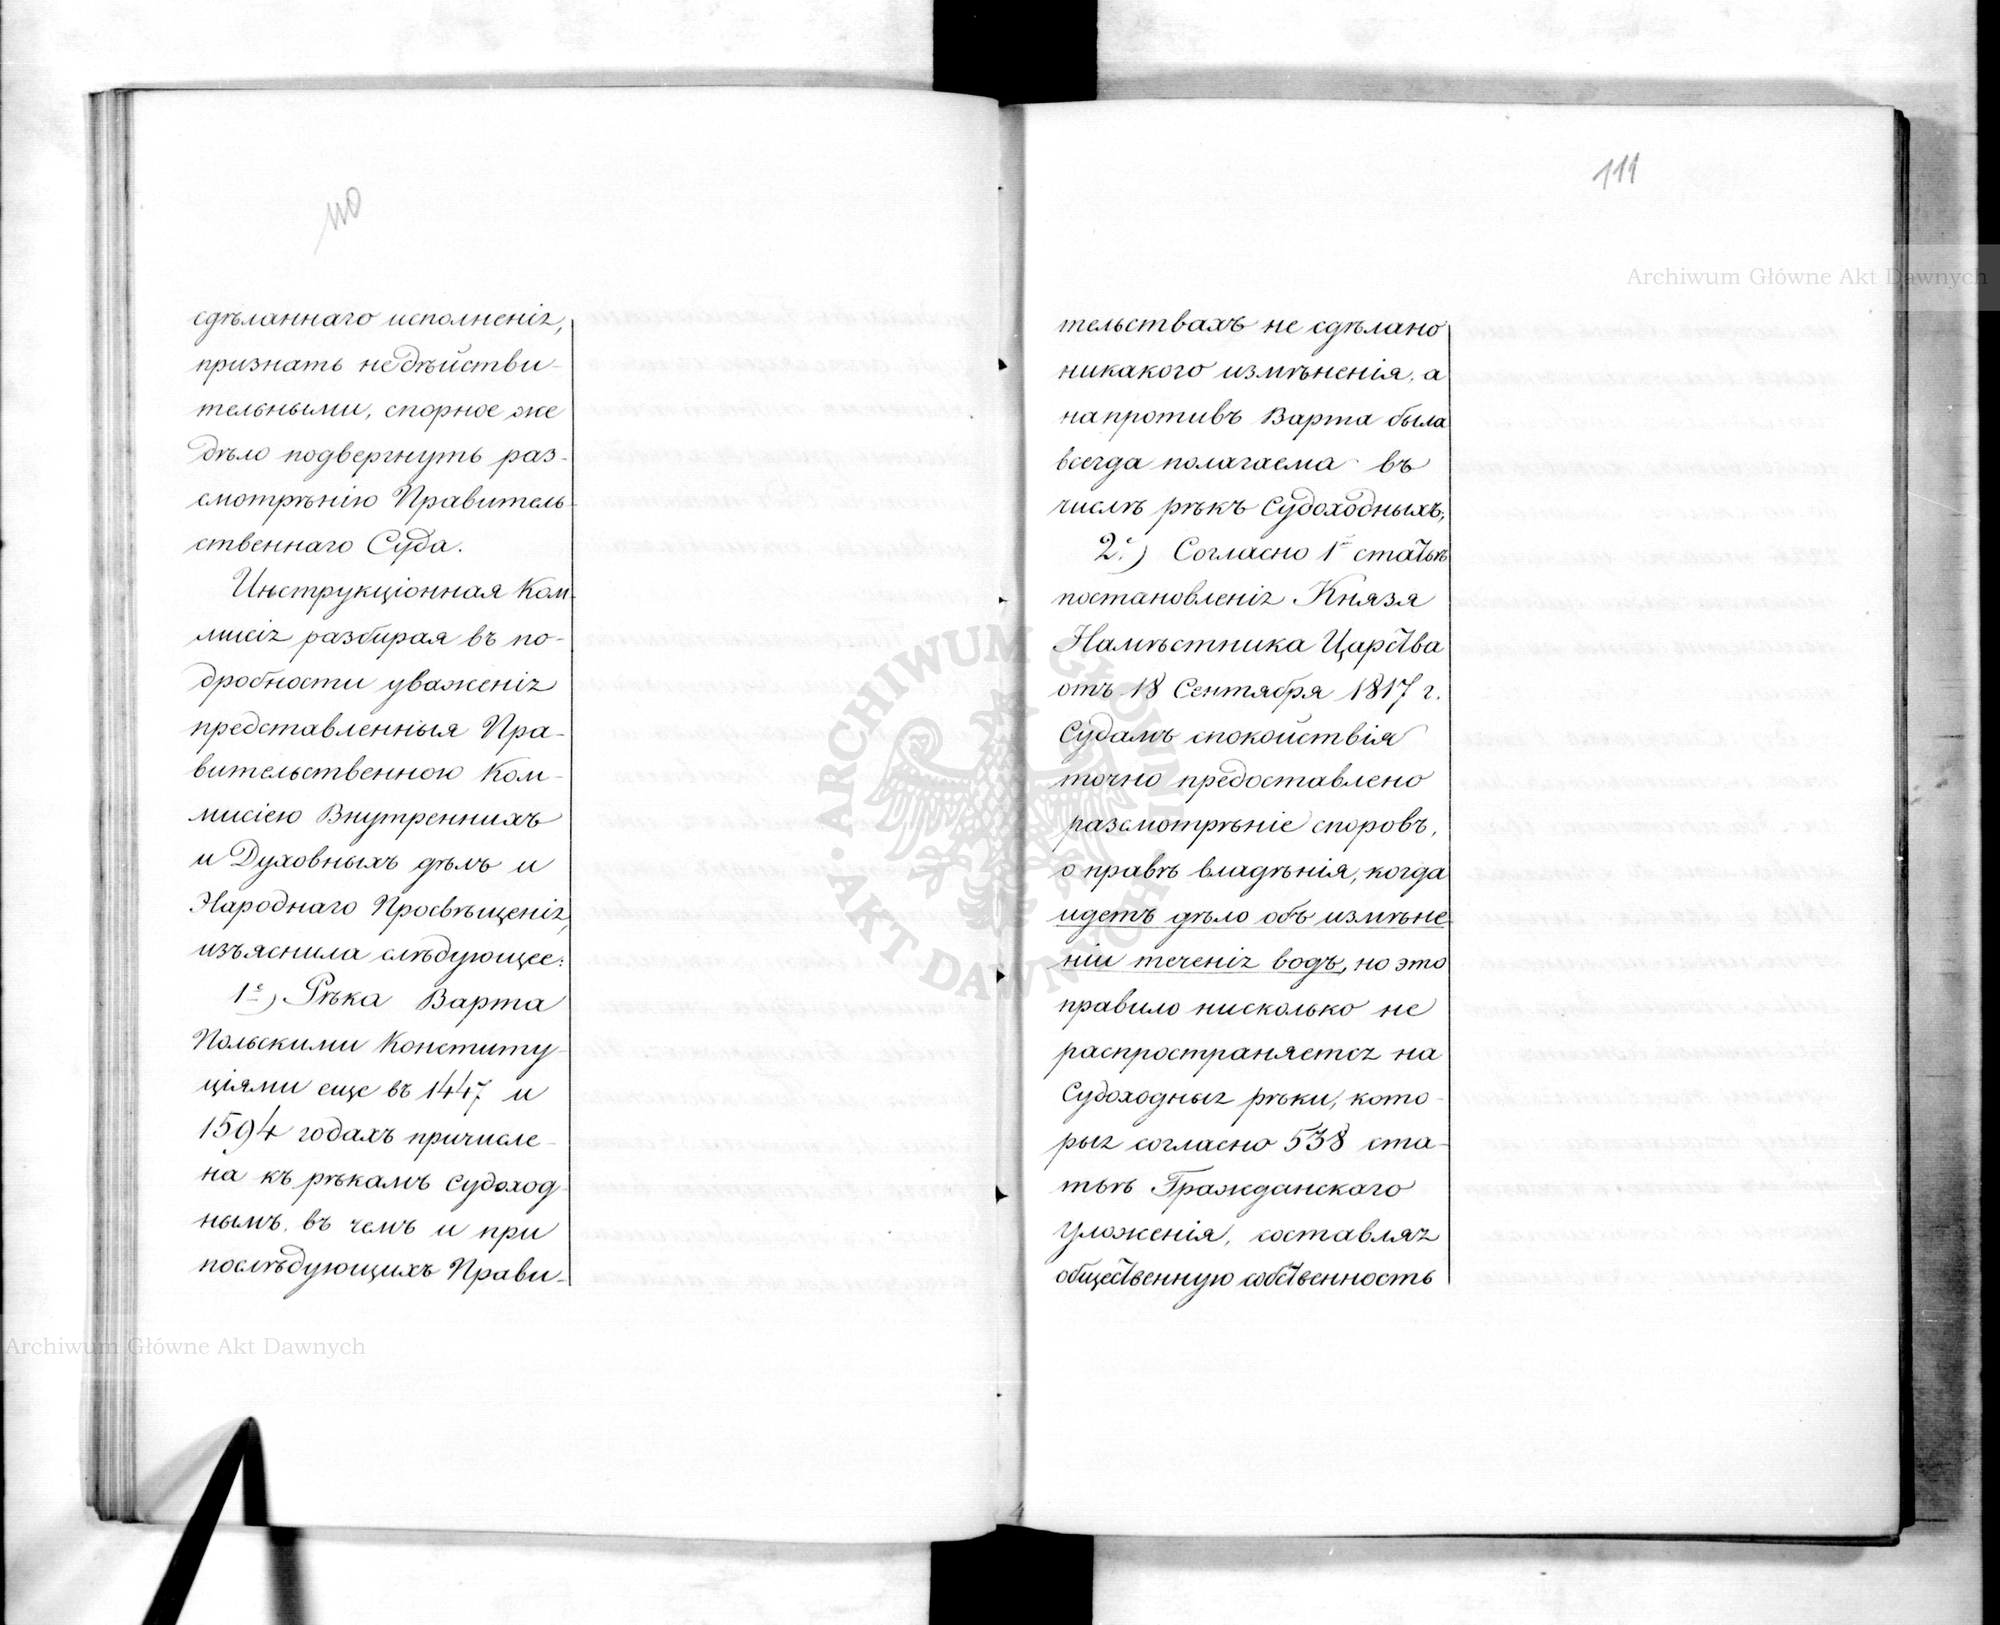 110
сдѣланнаго исполненія,
признать недѣйстви-
тельными, спорное же
дѣло подвергнуть раз-
смотрѣнію Правитель-
ственнаго Суда.
Инструкціонная Ком-
мисія разбирая въ по-
дробности уваженія
представленныя Пра-
вительственною Ком-
мисіею Внутреннихъ
и Духовныхъ дѣлъ и
Народнаго Просвѣщенія,
изъяснила слѣдующее:
1е) Рѣка Варта
Польскими Конститу-
ціями еще въ 1447 и
1594 годахъ причисле-
на къ рѣкамъ судоход-
нымъ, въ чемъ и при
послѣдующихъ Прави-
111
тельствахъ не сдѣлано
никакого измѣненія, а
напротивъ Варта была
всегда полагаема въ
числѣ рѣкъ Судоходныхъ;
2е) Согласно 1й статьѣ
постановленія Князя
Намѣстника Царства
отъ 18 Сентября 1817 г.
Судамъ спокойствія
точно предоставлено
разсмотрѣніе споровъ,
о правѣ владѣнія, когда
идетъ дѣло объ измѣне-
ніи теченія водъ, но это
правило нисколько не
распространяется на
Судоходныя рѣки, кото-
рыя согласно 538 ста-
тьѣ Гражданскаго
уложенія, составляя
общественную собственность
Archiwum Główne Akt Dawnych
Archiwum Główne Akt Dawnych
ARCHIWUM GŁÓWNE · AKT DAWNYCH ·